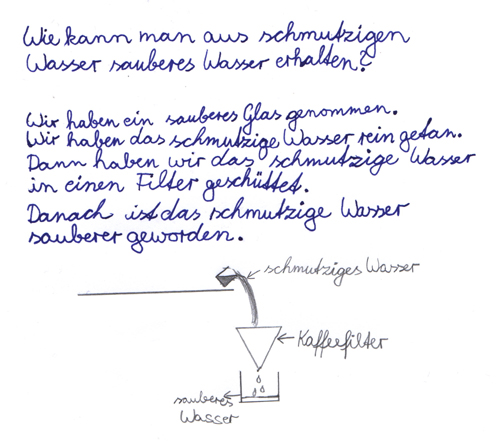 Wie kann man aus schmutzigen
Wasser sauberes Wasser erhalten?
Wir haben ein sauberes Glas genommen.
Wir haben das schmutzige Wasser rein getan.
Dann haben wir das schmutzige Wasser
in einen Filter geschüttet.
Danach ist das schmutzige Wasser
sauberer geworden.
schmutziges Wasser
Kaffeefilter
sauberes
Wasser